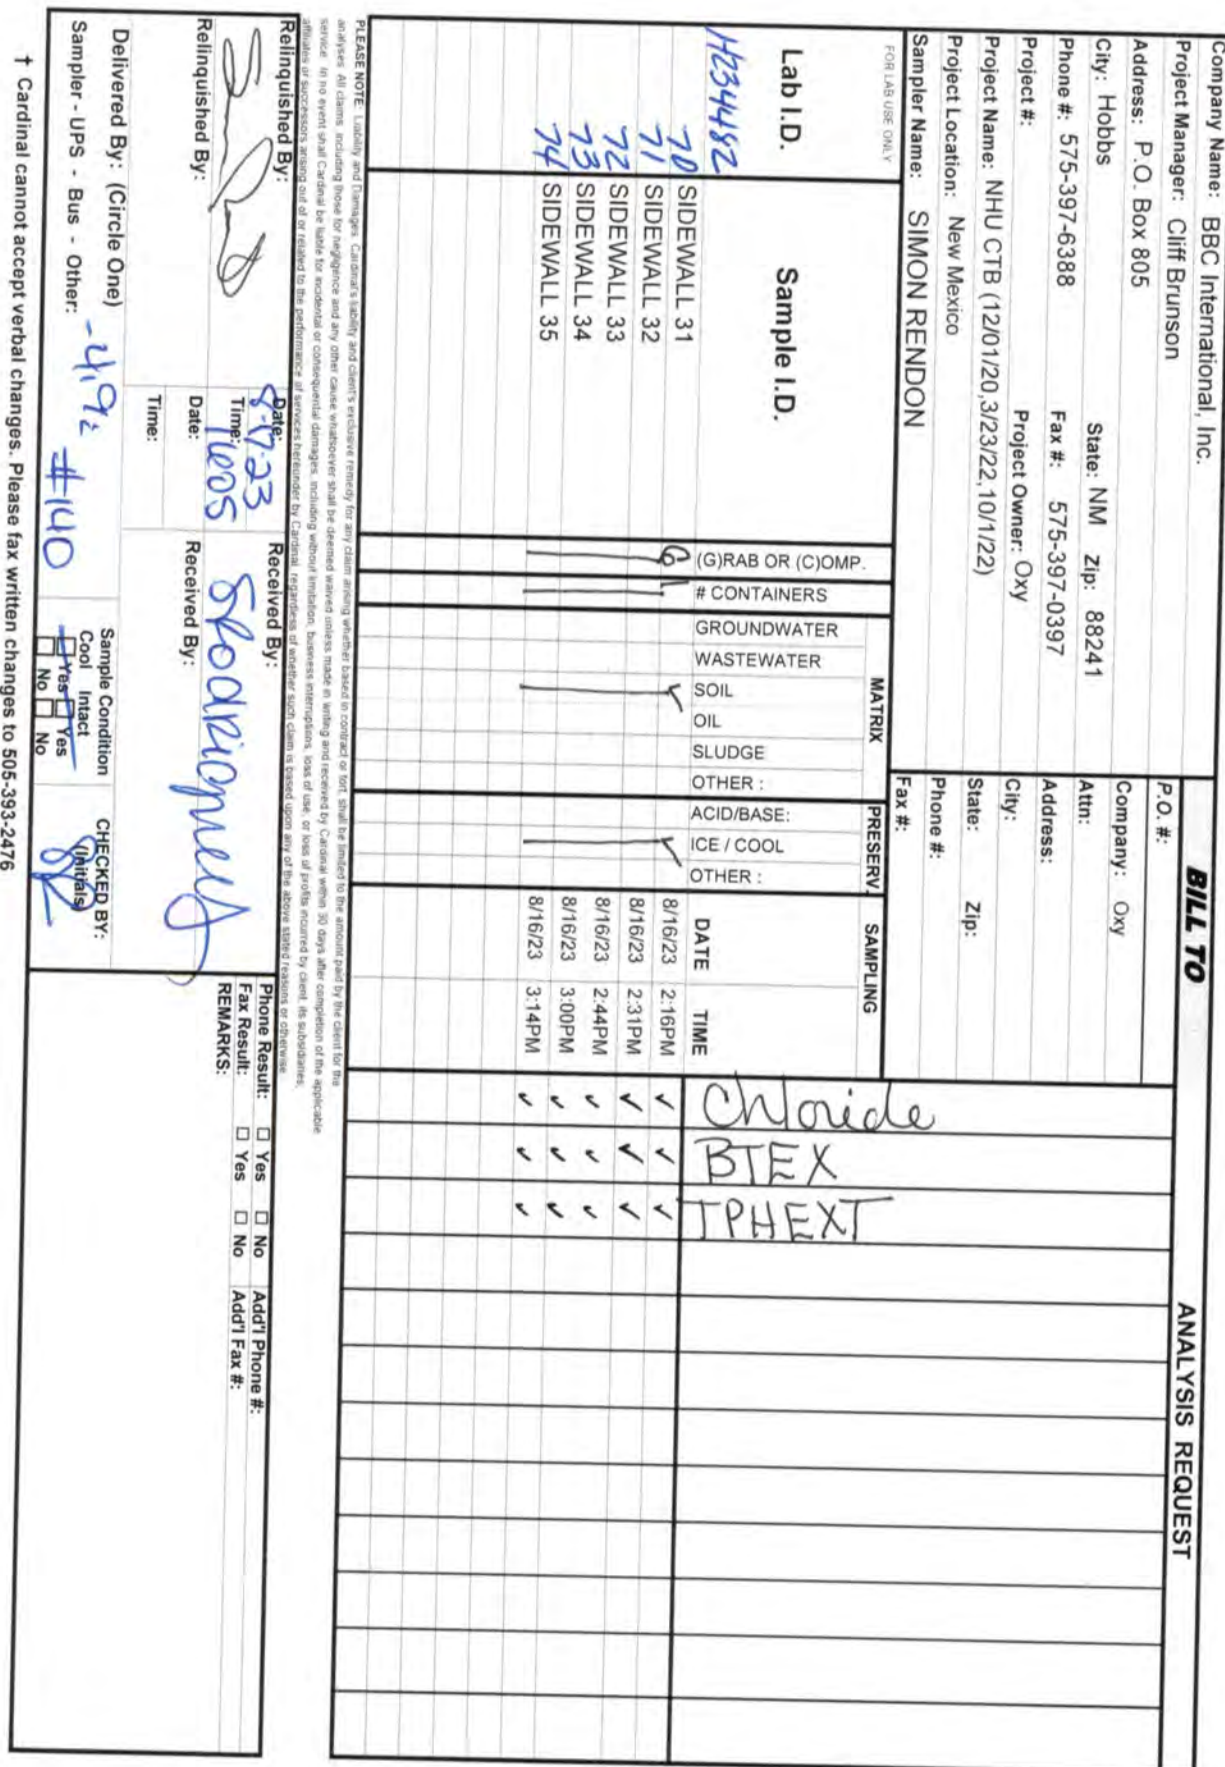 Company Name: BBC International, Inc.
Project Manager: Cliff Brunson
Address: P.O. Box 805
City: Hobbs State: NM Zip: 88241
Phone #: 575-397-6388 Fax #: 575-397-0397
Project #: Project Owner: Oxy
Project Name: NHU CTB (12/01/20,3/23/22,10/1/22)
Project Location: New Mexico
Sampler Name: SIMON RENDON
BILL TO
P.O. #:
Company: Oxy
Attn:
Address:
City:
State: Zip:
Phone #:
Fax #:
ANALYSIS REQUEST
FOR LAB USE ONLY
Lab I.D.
H234482
Sample I.D.
(G)RAB OR (C)OMP.
# CONTAINERS
MATRIX
GROUNDWATER
WASTEWATER
SOIL
OIL
SLUDGE
OTHER :
PRESERV.
ACID/BASE:
ICE / COOL
OTHER :
SAMPLING
DATE TIME
Chloride
BTEX
TPHEXT
70 SIDEWALL 31 G 1 ✓ ✓ 8/16/23 2:16PM ✓ ✓ ✓
71 SIDEWALL 32 8/16/23 2:31PM ✓ ✓ ✓
72 SIDEWALL 33 8/16/23 2:44PM ✓ ✓ ✓
73 SIDEWALL 34 8/16/23 3:00PM ✓ ✓ ✓
74 SIDEWALL 35 8/16/23 3:14PM ✓ ✓ ✓
PLEASE NOTE: Liability and Damages. Cardinal's liability and client's exclusive remedy for any claim arising whether based in contract or tort, shall be limited to the amount paid by the client for the
analyses. All claims, including those for negligence and any other cause whatsoever shall be deemed waived unless made in writing and received by Cardinal within 30 days after completion of the applicable
service. In no event shall Cardinal be liable for incidental or consequental damages, including without limitation, business interruptions, loss of use, or loss of profits incurred by client, its subsidiaries,
affiliates or successors arising out of or related to the performance of services hereunder by Cardinal, regardless of whether such claim is based upon any of the above stated reasons or otherwise.
Relinquished By:
Date: 8-17-23
Time: 1605
Received By:
Relinquished By:
Date:
Time:
Received By:
Phone Result: ☐ Yes ☐ No Add'l Phone #:
Fax Result: ☐ Yes ☐ No Add'l Fax #:
REMARKS:
Delivered By: (Circle One)
Sampler - UPS - Bus - Other:
#140
Sample Condition
Cool Intact
☐ Yes ☐ Yes
☐ No ☐ No
CHECKED BY:
(Initials)
† Cardinal cannot accept verbal changes. Please fax written changes to 505-393-2476